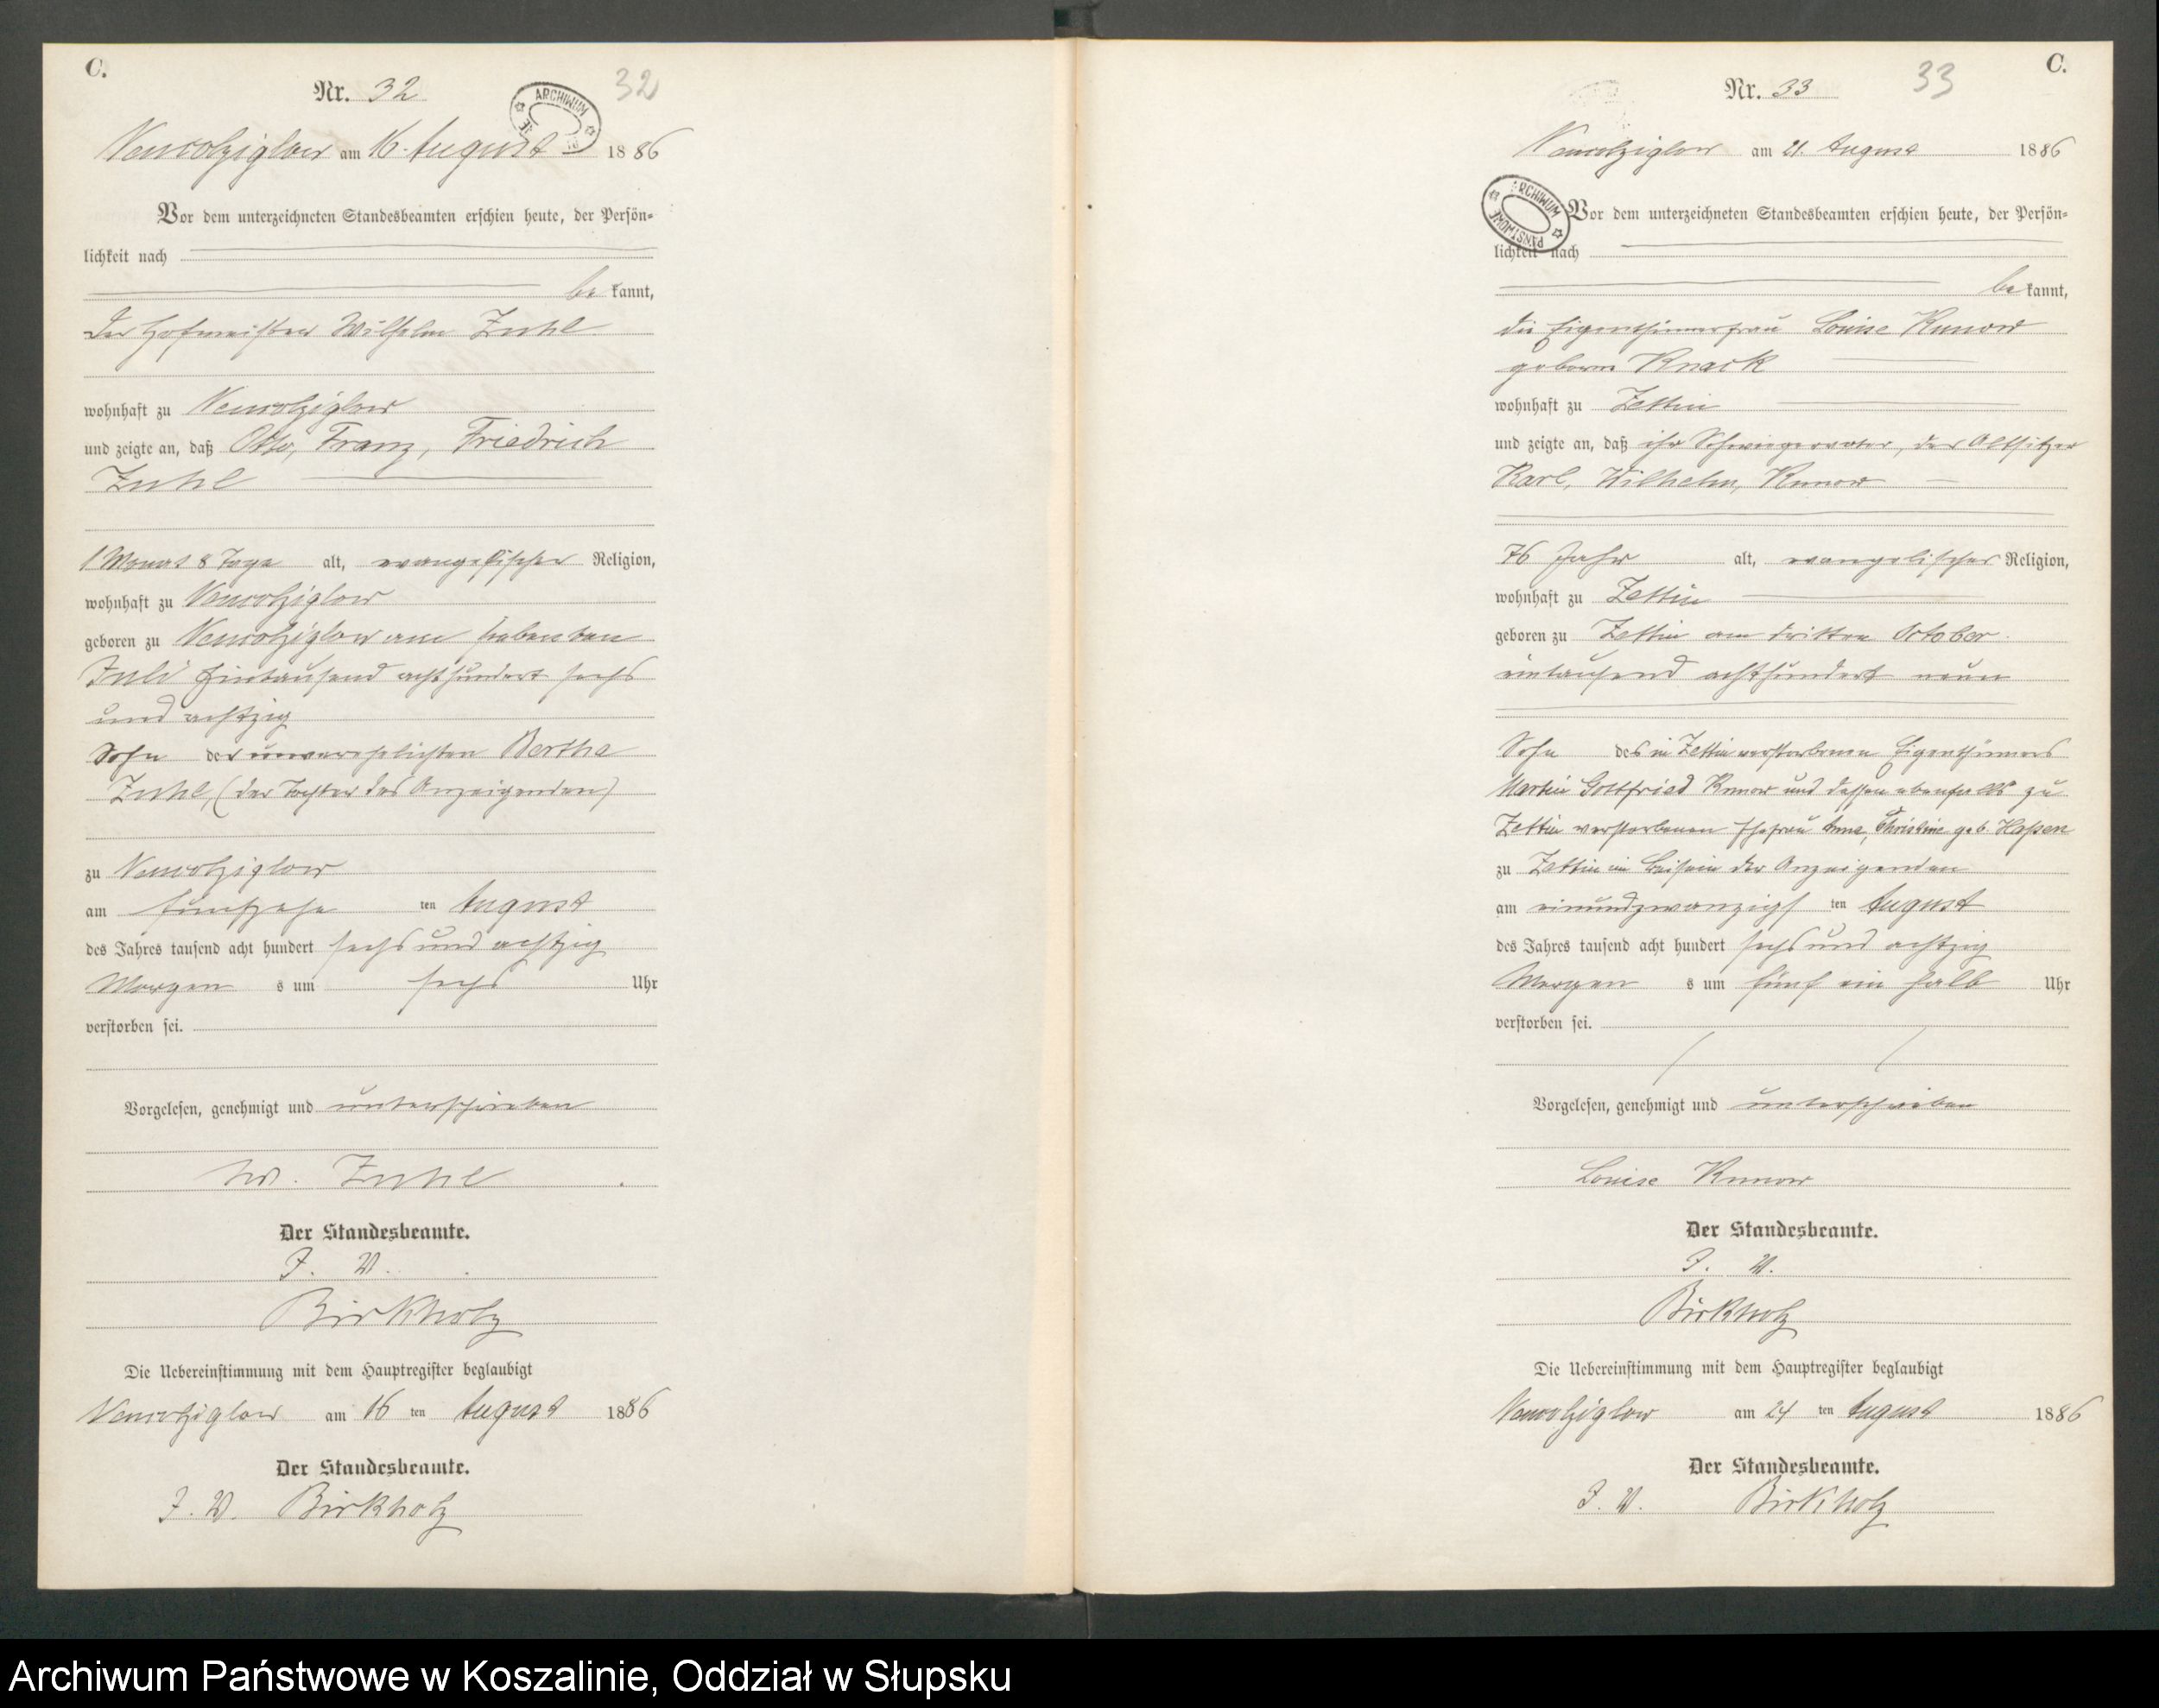 C.
Nr. 32
32
ARCHIWUM
Neuwolziglow am 16. August 1886
Vor dem unterzeichneten Standesbeamten erschien heute, der Persön=
lichkeit nach
be kannt,
Der Hofmeister Wilhelm Zuhl
wohnhaft zu Neuwolziglow
und zeigte an, daß Otto, Franz, Friedrich
Zuhl
1 Monat 8 Tage alt, evangelischer Religion,
wohnhaft zu Neuwolziglow
geboren zu Neuwolziglow am siebenten
Juli Eintausend achthundert sechs
und achtzig
Sohn der unverehelichten Bertha
Zuhl, (der Tochter des Anzeigenden)
zu Neuwolziglow
am fünfzehn ten August
des Jahres tausend acht hundert sechs und achtzig
Morgen s um sechs Uhr
verstorben sei.
Vorgelesen, genehmigt und unterschrieben
W. Zuhl
Der Standesbeamte.
J. V.
Birkholz
Die Uebereinstimmung mit dem Hauptregister beglaubigt
Neuwolziglow am 16 ten August 1886
Der Standesbeamte.
J. V. Birkholz
C.
Nr. 33
33
Neuwolziglow am 21. August 1886
ARCHIWUM PAŃSTWOWE
Vor dem unterzeichneten Standesbeamten erschien heute, der Persön=
lichkeit nach
be kannt,
die Eigenthümerfrau Louise Kunow
geborne Knack
wohnhaft zu Zettin
und zeigte an, daß ihr Schwiegervater, der Altsitzer
Karl, Wilhelm, Kunow
76 Jahr alt, evangelischer Religion,
wohnhaft zu Zettin
geboren zu Zettin am dritten October
eintausend achthundert neun
Sohn des in Zettin verstorbenen Eigenthümers
Martin Gottfried Kunow und dessen ebenfalls zu
Zettin verstorbenen Ehefrau Anna, Christine geb. Hassen
zu Zettin im Beisein der Anzeigenden
am einundzwanzigs ten August
des Jahres tausend acht hundert sechs und achtzig
Morgen s um fünf ein halb Uhr
verstorben sei.
Vorgelesen, genehmigt und unterschrieben
Louise Kunow
Der Standesbeamte.
J. V.
Birkholz
Die Uebereinstimmung mit dem Hauptregister beglaubigt
Neuwolziglow am 21 ten August 1886
Der Standesbeamte.
J. V. Birkholz
Archiwum Państwowe w Koszalinie, Oddział w Słupsku